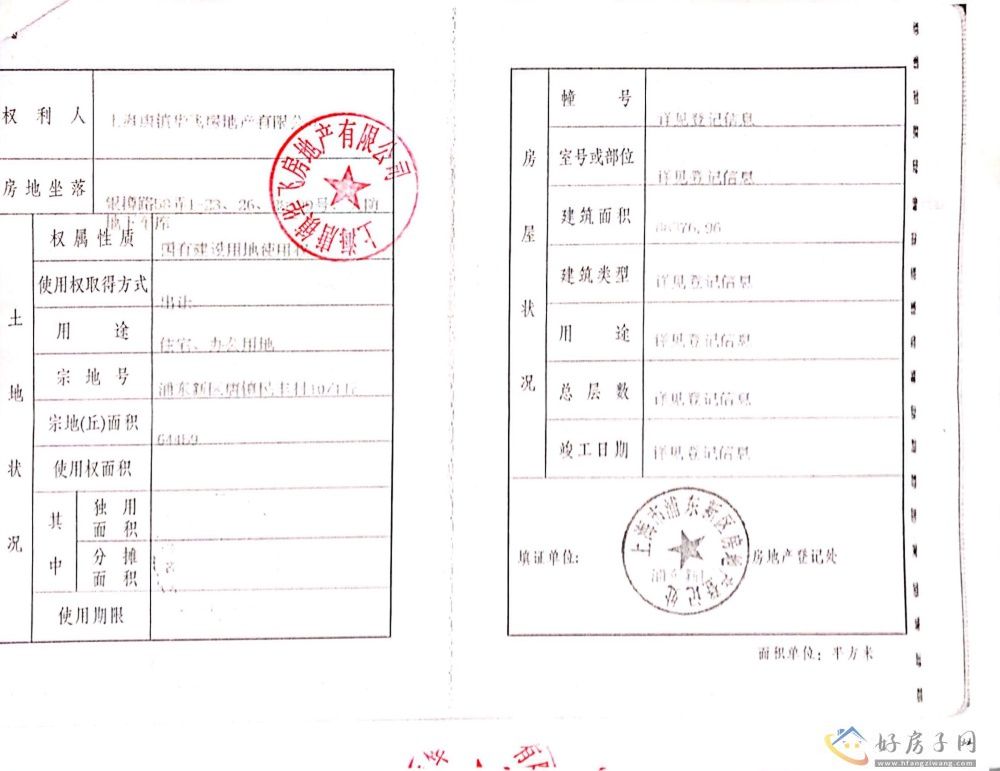 权利人
房地坐落
土地状况
权属性质
国有建设用地使用权
使用权取得方式
出让
用途
住宅、办公用地
宗地号
宗地(丘)面积
使用权面积
其中
独用面积
分摊面积
使用期限
上海唐镇华飞房地产有限公司
房屋状况
幢号
详见登记信息
室号或部位
详见登记信息
建筑面积
建筑类型
详见登记信息
用途
详见登记信息
总层数
详见登记信息
竣工日期
详见登记信息
填证单位:
房地产登记处
上海市浦东新区房地产登记处
面积单位: 平方米
好房子网
www.hfangziwang.com